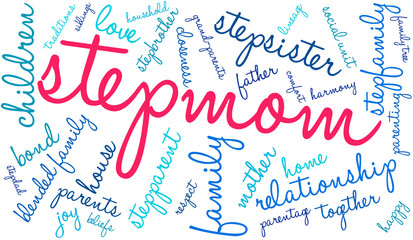 children
traditions
siblings
love
household
stepbrother
grand-parents
closeness
stepsister
father
lineage
social unit
comfort
harmony
stepfamily
family tree
stepmom
bond
stepdad
blended family
house
parents
joy
beliefs
stepparent
respect
family
mother
home
relationship
parentag
together
happy